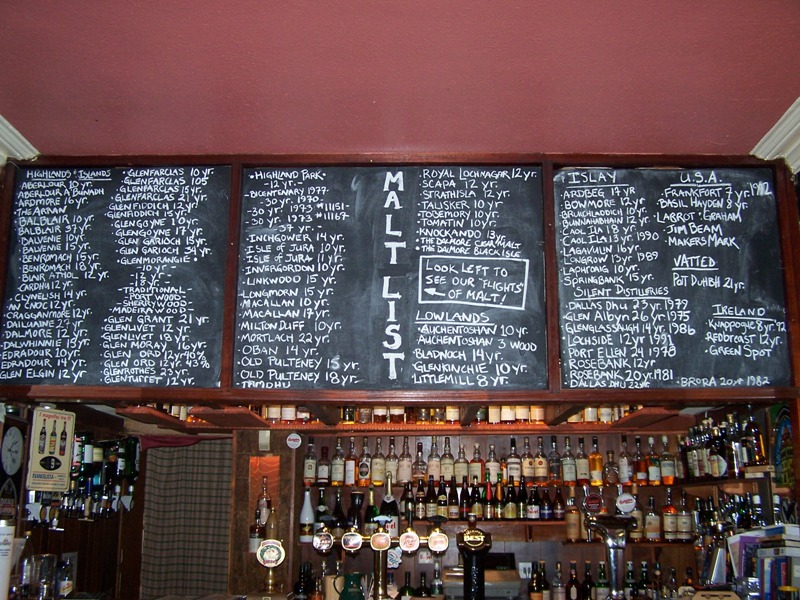 HIGHLANDS & ISLANDS
ABERLOUR 10 yr.
ABERLOUR A'BUNADH
ARDMORE 16 yr.
THE ARRAN
BALBLAIR 10 yr.
BALBLAIR 37 yr.
BALVENIE 10 yr.
BALVENIE 15 yr.
BENROMACH 15 yr.
BENROMACH 18 yr.
BLAIR ATHOL 12 yr.
CARDHU 12 yr.
CLYNELISH 14 yr.
AN CNOC 12 yr.
CRAGGANMORE 12 yr.
DAILUAINE
DALMORE 12 yr.
DALWHINNIE 15 yr.
EDRADOUR 10 yr.
EDRADOUR 14 yr.
GLEN ELGIN 12 yr.
GLENFARCLAS 10 yr.
GLENFARCLAS 105
GLENFARCLAS 15 yr.
GLENFARCLAS 21 yr.
GLENFIDDICH 12 yr.
GLENFIDDICH 15 yr.
GLENGOYNE 10 yr.
GLENGOYNE 17 yr.
GLEN GARIOCH 15 yr.
GLEN GARIOCH 34 yr.
GLENMORANGIE
-10 yr.-
-18 yr.-
-TRADITIONAL-
-PORT WOOD-
-SHERRYWOOD-
-MADEIRAWOOD-
GLEN GRANT 21 yr.
GLENLIVET 12 yr.
GLENLIVET 18 yr.
GLEN MORAY 16 yr.
GLEN ORD 12yr 40%
GLEN ORD 12yr 43%
GLENROTHES 23 yr.
GLENTURRET 12 yr.
HIGHLAND PARK
-12 yr.-
-BICENTENARY 1977-
-30 yr. 1970-
-30 yr. 1973 #11151-
-30 yr. 1973 #11167-
-37 yr.-
INCHGOWER 14 yr.
ISLE OF JURA 10 yr.
ISLE OF JURA 11 yr.
INVERGORDON 10 yr.
LINKWOOD 15 yr.
LONGMORN 15 yr.
MACALLAN 10 yr.
MACALLAN 17 yr.
MILTON DUFF 10 yr.
MORTLACH 22 yr.
OBAN 14 yr.
OLD PULTENEY 15 yr.
OLD PULTENEY 18 yr.
TAMDHU
MALT LIST
ROYAL LOCHNAGAR 12 yr.
SCAPA 12 yr.
STRATHISLA 12 yr.
TALISKER 10 yr.
TOBEMORY 10 yr.
TOMATIN 10 yr.
KNOCKANDO 13 yr.
THE DALMORE CIGAR MALT
THE DALMORE BLACK ISLE
LOOK LEFT TO
SEE OUR "FLIGHTS"
OF MALT!
LOWLANDS
AUCHENTOSHAN 10 yr.
AUCHENTOSHAN 3 WOOD
BLADNOCH 14 yr.
GLENKINCHIE 10 yr.
LITTLEMILL 8 yr.
ISLAY
ARDBEG 17 YR
BOWMORE 12 yr.
BRUICHLADDICH 10 yr.
BUNNAHABHAIN 12 yr.
CAOL ILA 18 yr.
CAOL ILA 13 yr. 1990
LAGAVULIN 16 yr.
LONGROW 13 yr. 1989
LAPHROAIG 10 yr.
SPRINGBANK 15 yr.
SILENT DISTILLERIES
DALLAS DHU 23 yr. 1979
GLEN ALBYN 26 yr. 1975
GLENGLASSAUGH 14 yr. 1986
LOCHSIDE 12 yr. 1991
PORT ELLEN 24 1978
ROSEBANK 12 yr.
ROSEBANK 20 yr. 1981
DALLAS DHU 22 yr.
U.S.A.
FRANKFORT 7 yr.
BASIL HAYDEN 8 yr.
LABROT & GRAHAM
JIM BEAM
MAKERS MARK
VATTED
POT DUBH 21 yr.
IRELAND
KNAPPOGUE 8 yr. 92
REDBREAST 12 yr.
GREEN SPOT
BRORA 20 yr 1982
BEST